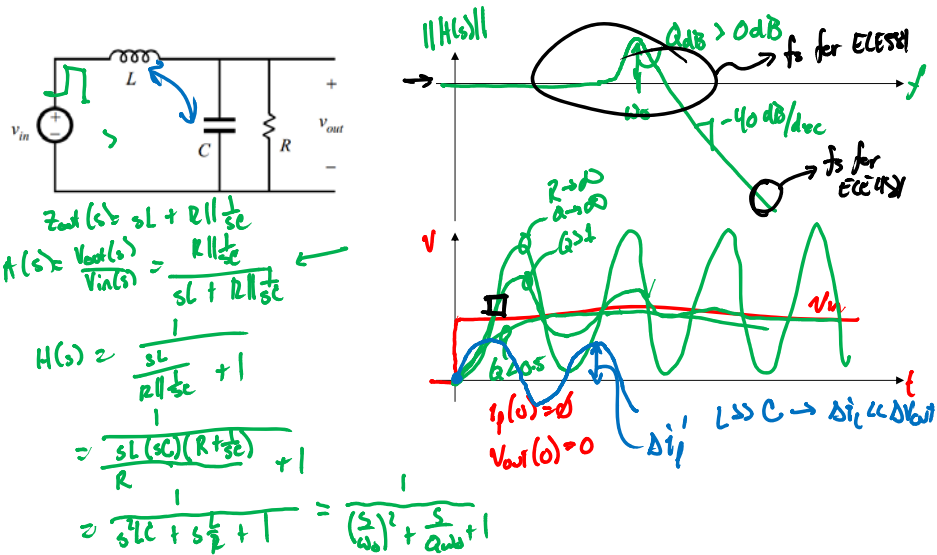 L
v_in
+
−
C
R
+
v_out
−
Z_out(s) = sL + R||1/sC
H(s) = V_out(s)/V_in(s) = (R||1/sC)/(sL + R||1/sC)
H(s) = 1/(sL/(R||1/sC) + 1)
= 1/(sL(sC)(R+1/sC)/R + 1)
= 1/(s²LC + s L/R + 1) = 1/((s/ω₀)² + s/(Qω₀) + 1)
||H(s)||
Q_dB > 0dB
fs for ECE581
f
ω₀
-40 dB/dec
fs for ECE4581
R→∞
Q→∞
Q>1
V
V_in
Q<0.5
t
i_L(0)=0
V_out(0)=0
Δi_L
L >> C → Δi_L << ΔV_out